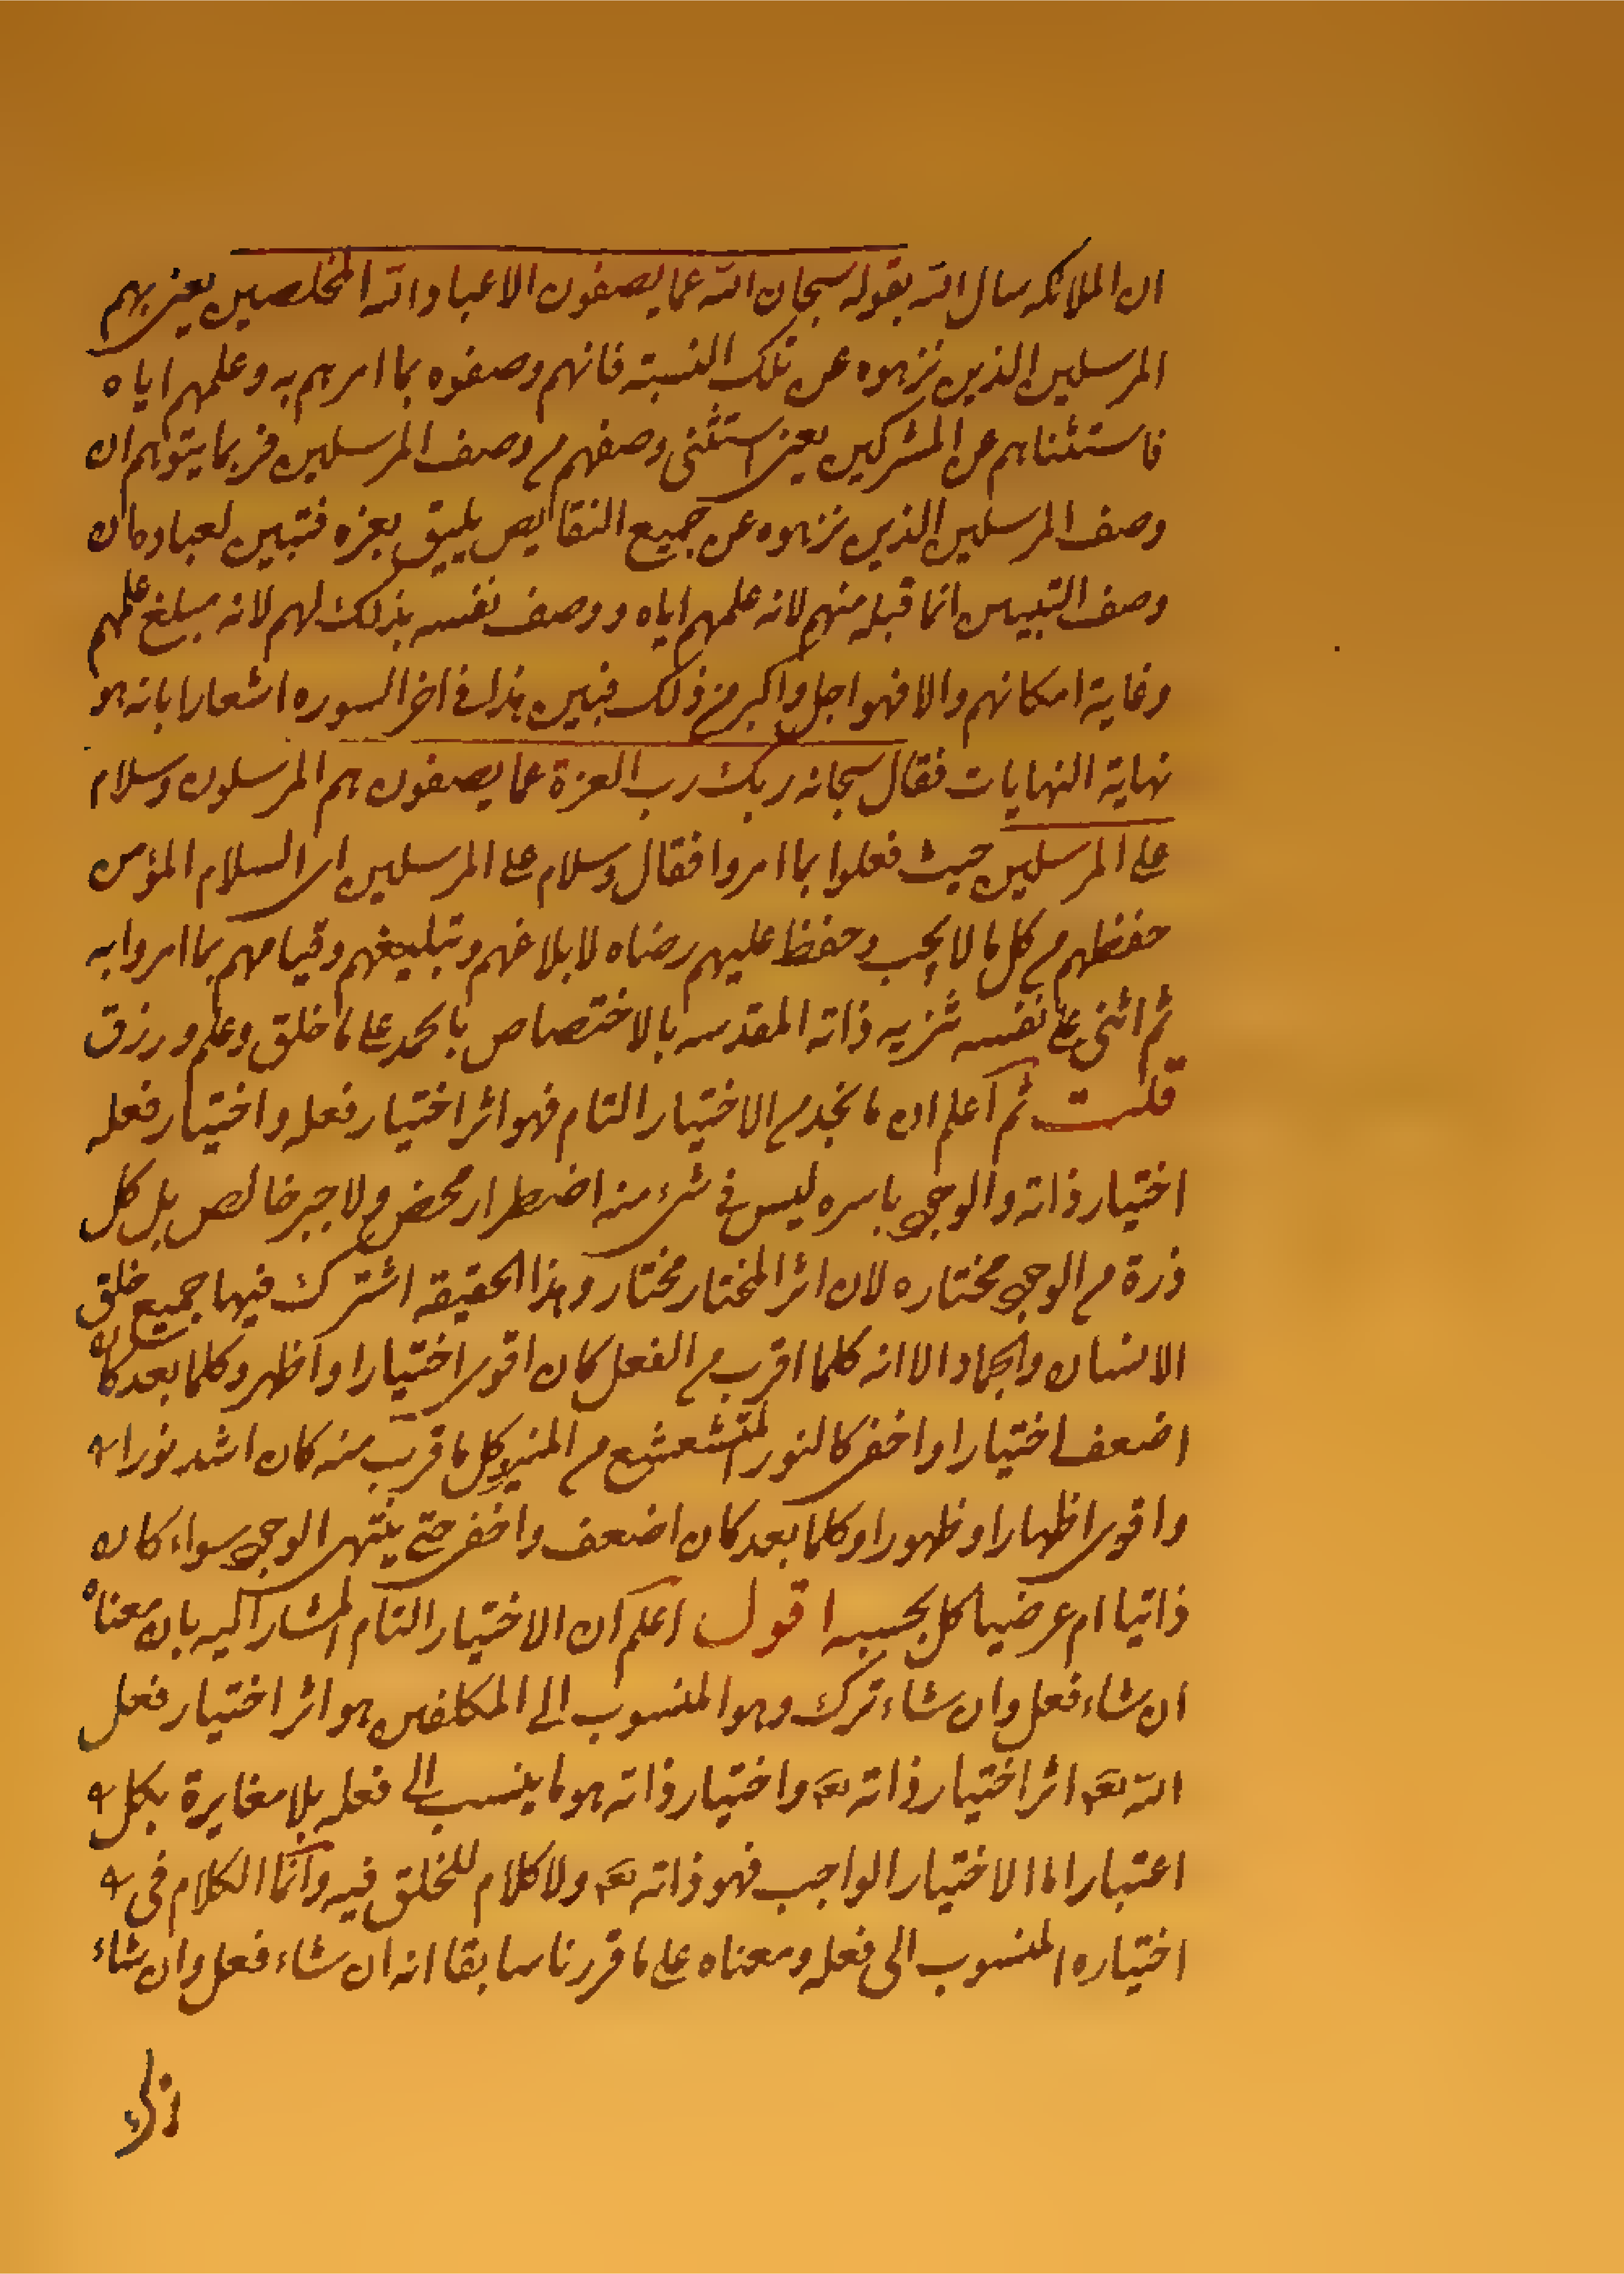 ان الملائكه سال الله بقوله سبحان الله عما يصفون الا عباد الله المخلصين يعنى بهم
المرسلين الذين نزهوه عن تلك النسبته فانهم وصفوه بما امرهم به وعلمهم اياه
فاستثناهم عن المشركين يعنى استثنى وصفهم من وصف المرسلين فربما يتوهم ان
وصف المرسلين الذين نزهوه عن جميع النقايص يليق بعزه فتبين لعباده ان
وصف النبيين انما قبله منهم لانه علمهم اياه ووصف نفسه بذلك لهم لانه مبلغ علمهم
وغاية امكانهم والا فهو اجل واكبر من ذلك فبين هذا فى اخر السوره اشعارا بانه هو
نهاية النهايات فقال سبحانه ربك رب العزة عما يصفون هم المرسلون وسلام
على المرسلين حيث فعلوا بما امروا فقال وسلام على المرسلين اى السلام المؤمن
حفظهم من كل ما لا يحب وحفظ عليهم رضاه لابلاغهم وتبليغهم وقيامهم بما امروا به
ثم اثنى على نفسه تنزيه ذاته المقدسه بالاختصاص بالحمد على ما خلق وعلم ورزق
قلت ثم اعلم ان ما تجد من الاختيار التام فهو اثر اختيار فعله واختيار فعله
اختيار ذاته والوجى باسره ليس فى شىء منه اضطرار محض ولا جبر خالص بل كل
ذرة من الوجى مختاره لان اثر المختار مختار وهذا الحقيقه اشترك فيها جميع خلق
الانسان والجماد الا انه كلما اقرب من الفعل كان اقوى اختيارا واظهر وكلما بعد كان
اضعف اختيارا واخفى كالنور المتشعشع من المنير وكل ما قرب منه كان اشد نورا
واقوى اظهارا وظهورا وكلما بعد كان اضعف واخفى حتى ينتهى الوجى سواء كان
ذاتيا ام عرضيا كل بحسبه اقول اعلم ان الاختيار التام المشار اليه بان معناه
ان شاء فعل وان شاء ترك وهو المنسوب الى المكلفين هو اثر اختيار فعل
الله تعه اثر اختيار ذاته تعه واختيار ذاته هو ما ينسب الى فعله بلا مغايرة بكل
اعتبار اما الاختيار الواجب فهو ذاته تعه ولا كلام للخلق فيه وانما الكلام فى
اختياره المنسوب الى فعله ومعناه على ما قررنا سابقا انه ان شاء فعل وان شاء